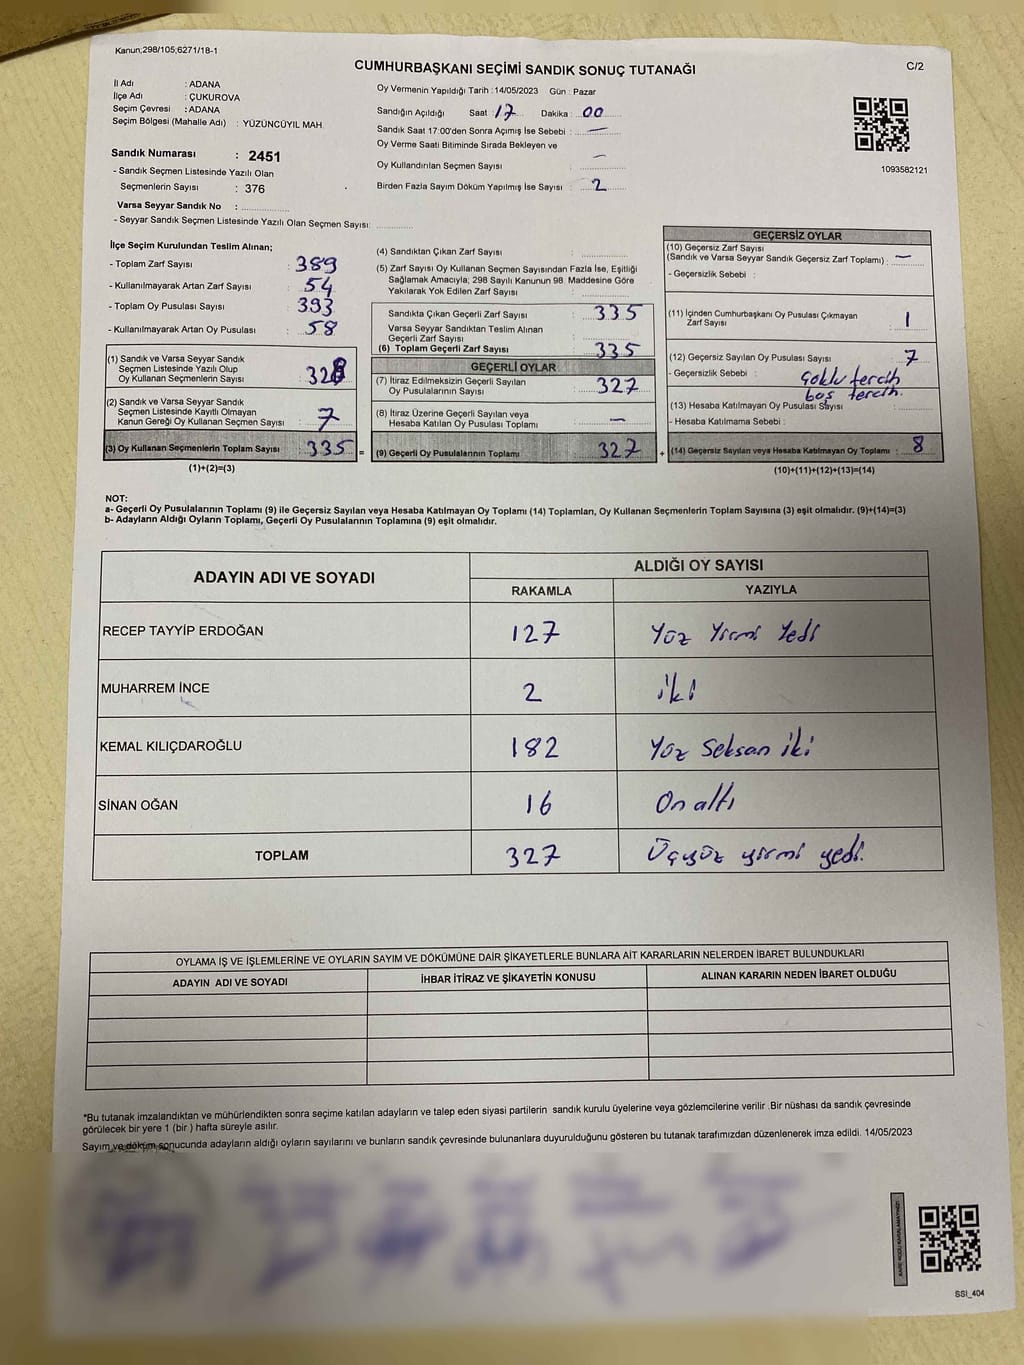 Kanun;298/105;6271/18-1
CUMHURBAŞKANI SEÇİMİ SANDIK SONUÇ TUTANAĞI
C/2
İl Adı : ADANA
İlçe Adı : ÇUKUROVA
Seçim Çevresi : ADANA
Seçim Bölgesi (Mahalle Adı) : YÜZÜNCÜYIL MAH.
Sandık Numarası : 2451
- Sandık Seçmen Listesinde Yazılı Olan
Seçmenlerin Sayısı : 376
Varsa Seyyar Sandık No :
- Seyyar Sandık Seçmen Listesinde Yazılı Olan Seçmen Sayısı:
Oy Vermenin Yapıldığı Tarih : 14/05/2023 Gün : Pazar
Sandığın Açıldığı Saat : 17 Dakika : 00
Sandık Saat 17:00'den Sonra Açımış İse Sebebi : —
Oy Verme Saati Bitiminde Sırada Bekleyen ve
Oy Kullandırılan Seçmen Sayısı : —
Birden Fazla Sayım Döküm Yapılmış İse Sayısı : 2
1093582121
İlçe Seçim Kurulundan Teslim Alınan;
- Toplam Zarf Sayısı : 389
- Kullanılmayarak Artan Zarf Sayısı : 54
- Toplam Oy Pusulası Sayısı : 393
- Kullanılmayarak Artan Oy Pusulası : 58
(1) Sandık ve Varsa Seyyar Sandık
Seçmen Listesinde Yazılı Olup
Oy Kullanan Seçmenlerin Sayısı : 328
(2) Sandık ve Varsa Seyyar Sandık
Seçmen Listesinde Kayıtlı Olmayan
Kanun Gereği Oy Kullanan Seçmen Sayısı : 7
(3) Oy Kullanan Seçmenlerin Toplam Sayısı : 335
(1)+(2)=(3)
(4) Sandıktan Çıkan Zarf Sayısı :
(5) Zarf Sayısı Oy Kullanan Seçmen Sayısından Fazla İse, Eşitliği
Sağlamak Amacıyla; 298 Sayılı Kanunun 98. Maddesine Göre
Yakılarak Yok Edilen Zarf Sayısı :
Sandıkta Çıkan Geçerli Zarf Sayısı : 335
Varsa Seyyar Sandıktan Teslim Alınan
Geçerli Zarf Sayısı :
(6) Toplam Geçerli Zarf Sayısı : 335
GEÇERLİ OYLAR
(7) İtiraz Edilmeksizin Geçerli Sayılan
Oy Pusulasının Sayısı : 327
(8) İtiraz Üzerine Geçerli Sayılan veya
Hesaba Katılan Oy Pusulası Toplamı : —
= (9) Geçerli Oy Pusulalarının Toplamı : 327
GEÇERSİZ OYLAR
(10) Geçersiz Zarf Sayısı
(Sandık ve Varsa Seyyar Sandık Geçersiz Zarf Toplamı) : —
- Geçersizlik Sebebi :
(11) İçinden Cumhurbaşkanı Oy Pusulası Çıkmayan
Zarf Sayısı : 1
(12) Geçersiz Sayılan Oy Pusulası Sayısı : 7
- Geçersizlik Sebebi : Çoklu tercih
boş tercih.
(13) Hesaba Katılmayan Oy Pusulası Sayısı :
- Hesaba Katılmama Sebebi :
+ (14) Geçersiz Sayılan veya Hesaba Katılmayan Oy Toplamı : 8
(10)+(11)+(12)+(13)=(14)
NOT:
a- Geçerli Oy Pusulalarının Toplamı (9) ile Geçersiz Sayılan veya Hesaba Katılmayan Oy Toplamı (14) Toplamları, Oy Kullanan Seçmenlerin Toplam Sayısına (3) eşit olmalıdır. (9)+(14)=(3)
b- Adayların Aldığı Oyların Toplamı, Geçerli Oy Pusulalarının Toplamına (9) eşit olmalıdır.
ADAYIN ADI VE SOYADI
ALDIĞI OY SAYISI
RAKAMLA YAZIYLA
RECEP TAYYİP ERDOĞAN 127 Yüz Yirmi Yedi
MUHARREM İNCE 2 iki
KEMAL KILIÇDAROĞLU 182 Yüz Seksan iki
SİNAN OĞAN 16 On altı
TOPLAM 327 Üçyüz yirmi yedi.
OYLAMA İŞ VE İŞLEMLERİNE VE OYLARIN SAYIM VE DÖKÜMÜNE DAİR ŞİKAYETLERLE BUNLARA AİT KARARLARIN NELERDEN İBARET BULUNDUKLARI
ADAYIN ADI VE SOYADI İHBAR İTİRAZ VE ŞİKAYETİN KONUSU ALINAN KARARIN NEDEN İBARET OLDUĞU
*Bu tutanak imzalandıktan ve mühürlendikten sonra seçime katılan adayların ve talep eden siyasi partilerin sandık kurulu üyelerine veya gözlemcilerine verilir .Bir nüshası da sandık çevresinde
görülecek bir yere 1 (bir ) hafta süreyle asılır.
Sayım ve döküm sonucunda adayların aldığı oyların sayılarını ve bunların sandık çevresinde bulunanlara duyurulduğunu gösteren bu tutanak tarafımızdan düzenlenerek imza edildi. 14/05/2023
KARE KODU KARALAMAYINIZ!
SSİ_404